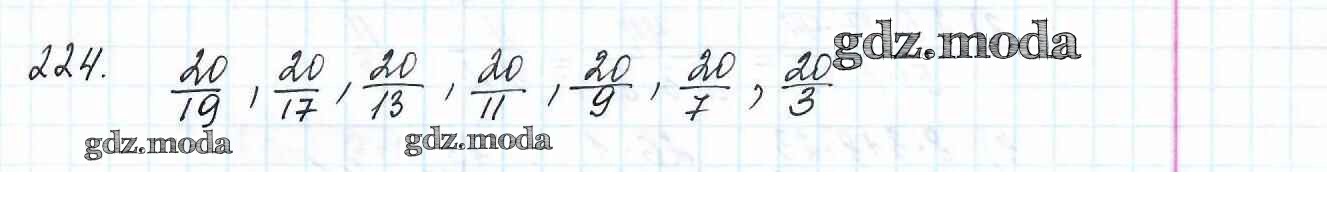 224. 20/19, 20/17, 20/13, 20/11, 20/9, 20/7, 20/3 gdz.moda
gdz.moda gdz.moda